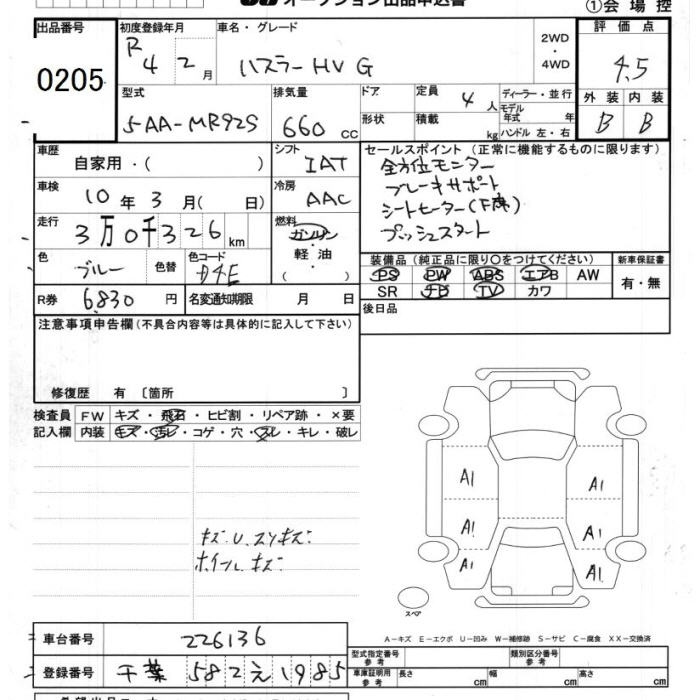 オークション出品申込書
①会場控
出品番号 初度登録年月 車名・グレード 2WD・4WD 評価点
0205 R4 2月 ハスラーHV G 4.5
型式 排気量 ドア 定員 4人 ディーラー・並行 外装 内装
5AA-MR92S 660cc 形状 積載 kg モデル年式 年 B B
ハンドル 左・右
車歴 自家用・( ) シフト IAT セールスポイント(正常に機能するものに限ります)
車検 10年3月(日) 冷房 AAC 全方位モニター
ブレーキサポート
シートヒーター(F席)
プッシュスタート
走行 3万0千326km 燃料 ガソリン・軽油・( )
色 ブルー 色替 色コード
装備品(純正品に限り○をつけてください) 新車保証書
PS PW ABS エアB AW 有・無
SR ナビ TV カワ
R券 6830円 名変通知期限 月 日
後日品
注意事項申告欄(不具合内容等は具体的に記入して下さい)
修復歴 有 〔箇所 〕
検査員記入欄 FW キズ・飛石・ヒビ割・リペア跡・×要
内装 キズ・汚レ・コゲ・穴・スレ・キレ・破レ
A1 A1
A1 A1
A1 A1
キズ.U.スリキズ
ホイールキズ
スペア
A-キズ E-エクボ U-凹み W-補修跡 S-サビ C-腐食 XX-交換済
車台番号 226136
型式指定番号 参考 類別区分番号 参考
登録番号 千葉 582 え 1985
車庫証明用 参考 長さ cm 幅 cm 高さ cm